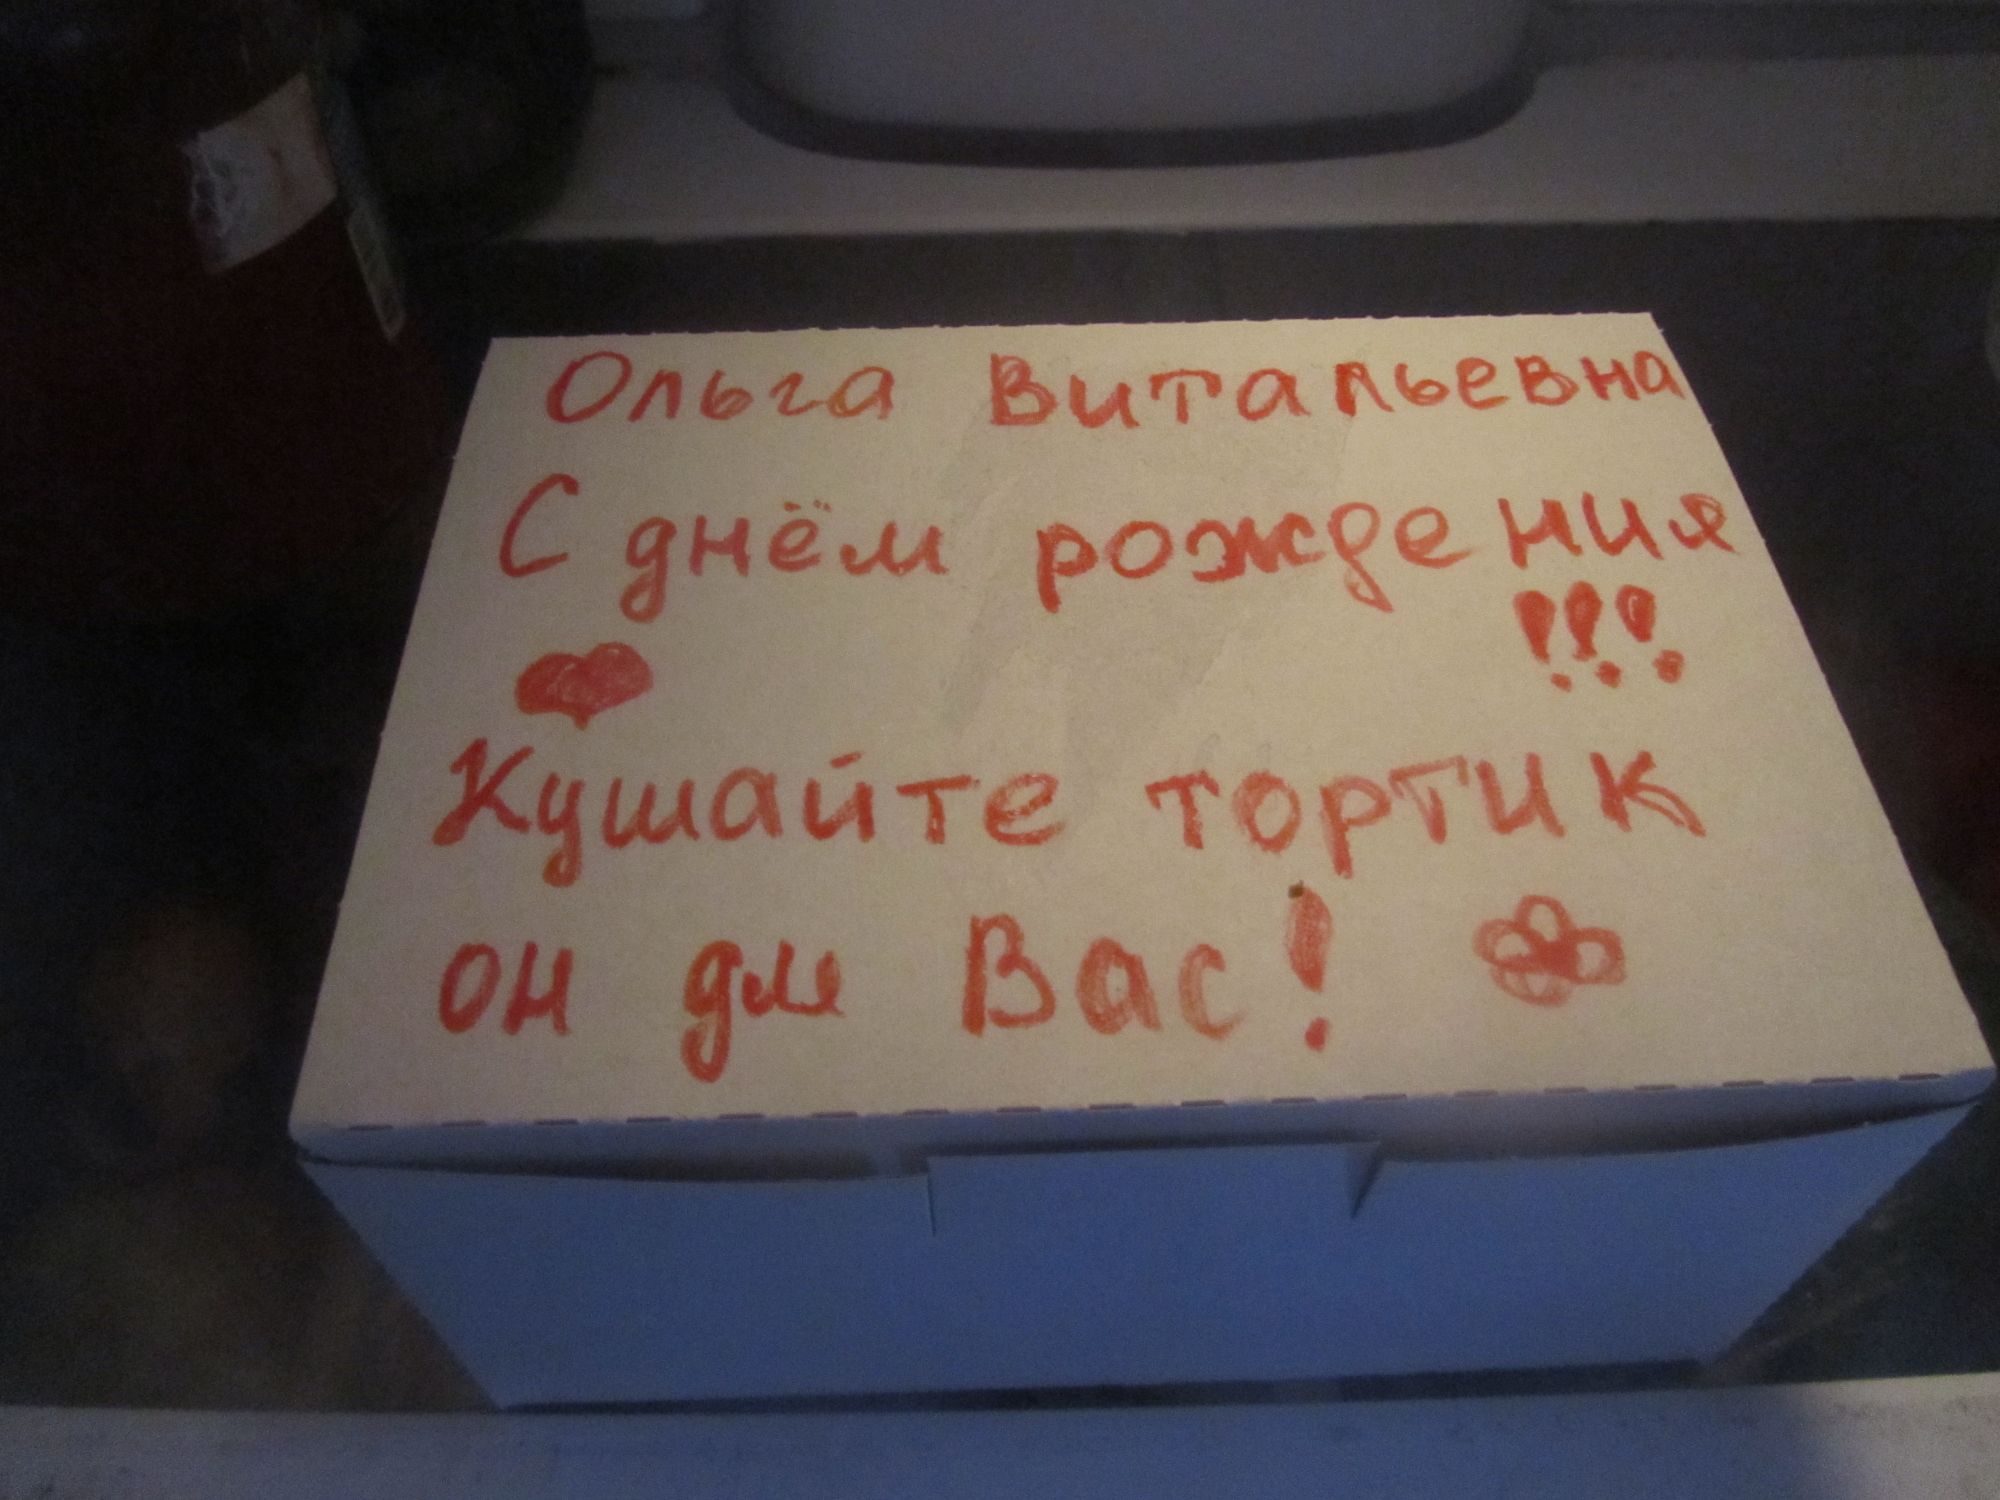 Ольга Витальевна
С днём рождения
!!!
Кушайте тортик
он для Вас!